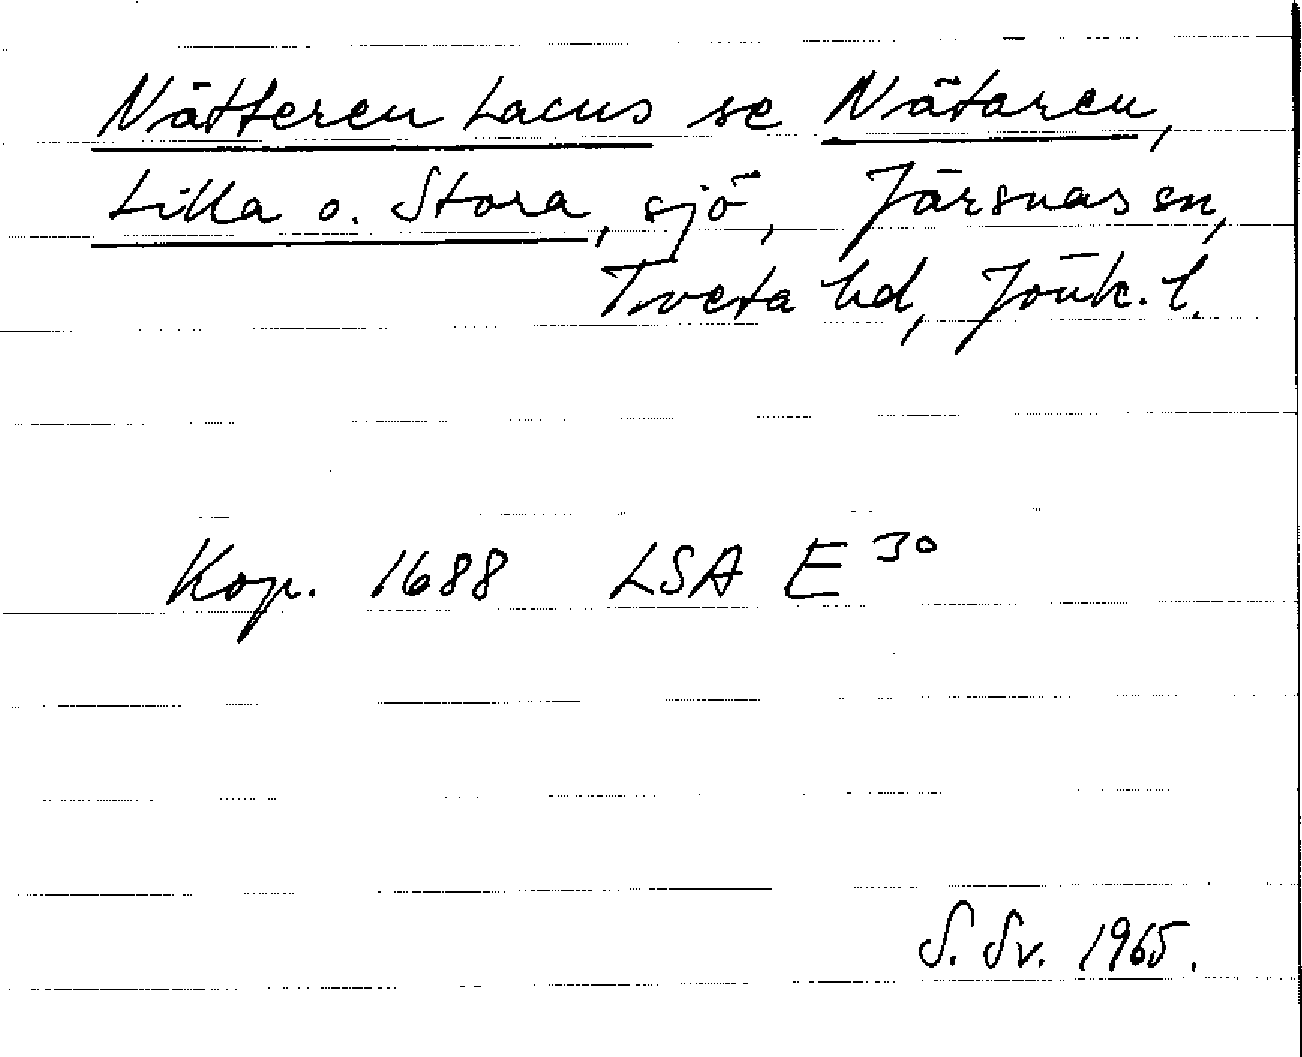 Nätteren Lacus se Nätaren,
Lilla o. Stora, sjö, Järsnäs sn,
Tveta hd, Jönk. l.
Kop. 1688 LSA E 30
S. Sv. 1965.